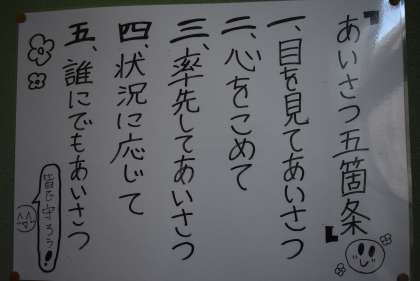 「あいさつ五箇条」
一、目を見てあいさつ
二、心をこめて
三、率先してあいさつ
四、状況に応じて
五、誰にでもあいさつ
皆で守ろう!